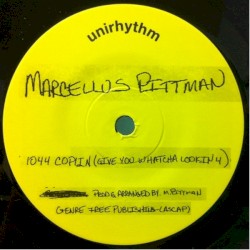 unirhythm
MARCELLUS PITTMAN
1044 COPLIN (GIVE YOU WHATCHA LOOKIN 4)
PROD & ARRANGED BY M. PITTMAN
GENRE FREE PUBLISHING (ASCAP)